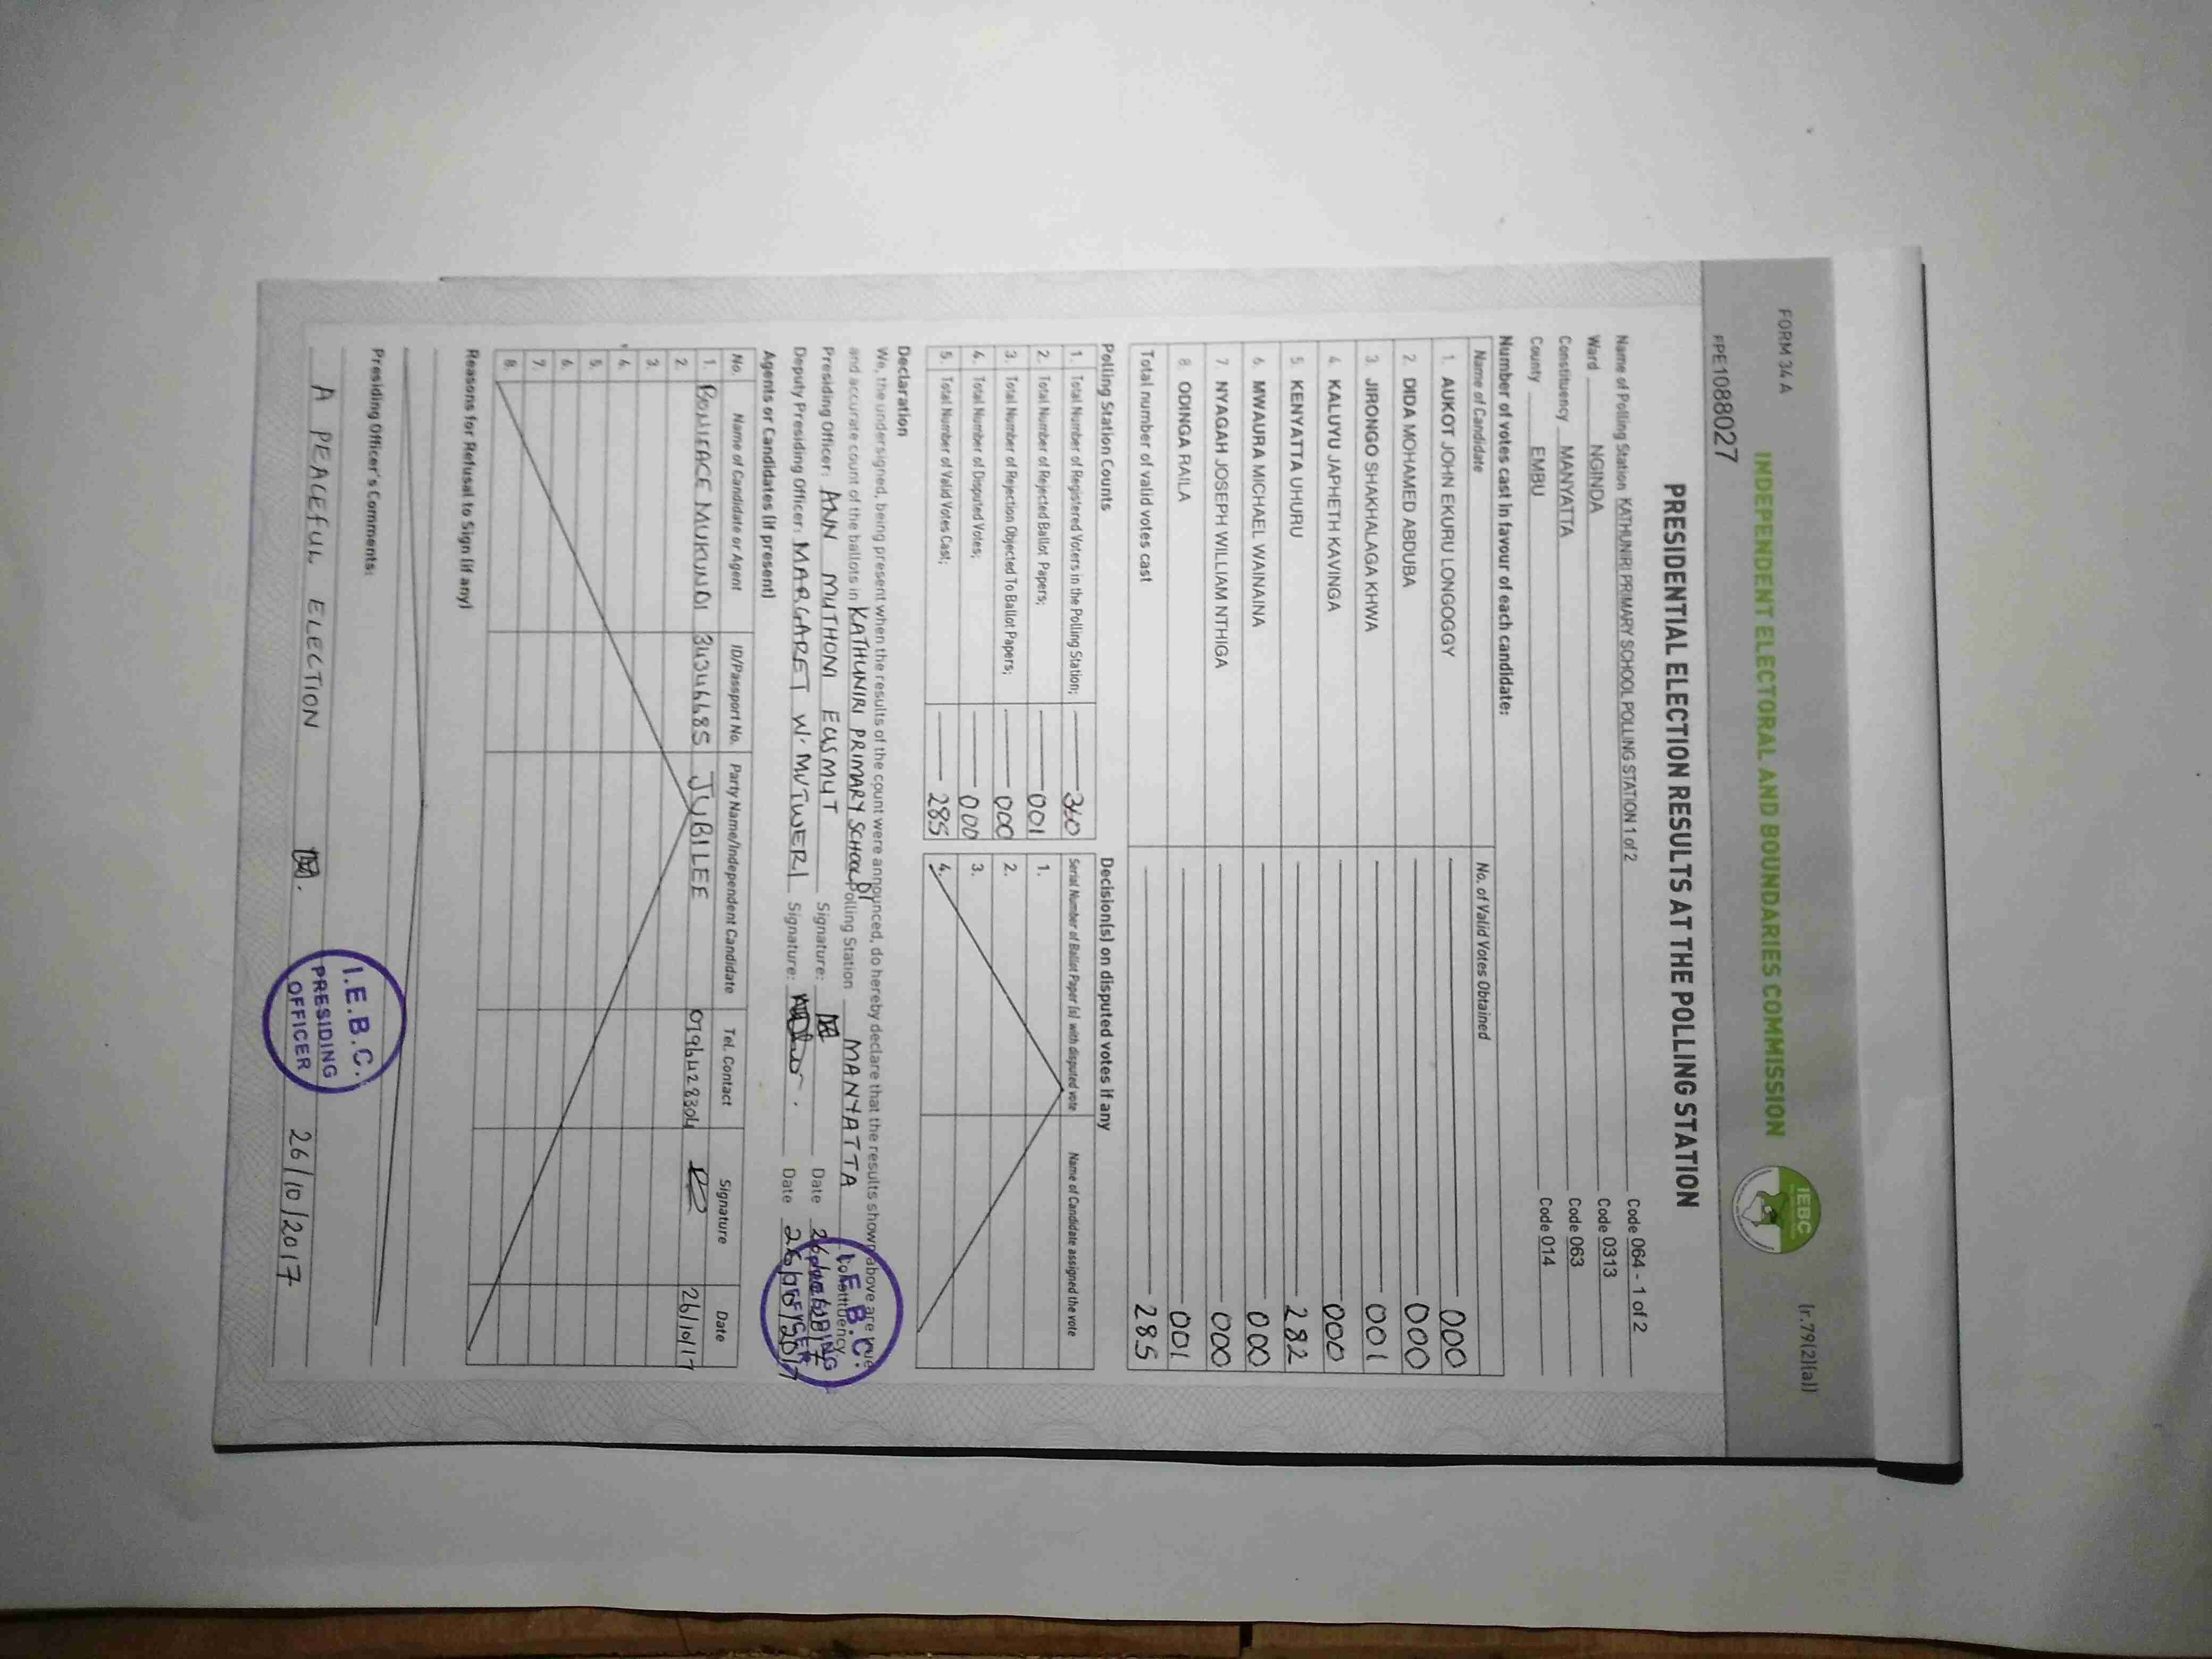 FORM 34 A
(r.79(2)(a))
INDEPENDENT ELECTORAL AND BOUNDARIES COMMISSION
IEBC
PPE1088027
PRESIDENTIAL ELECTION RESULTS AT THE POLLING STATION
Name of Polling Station KATHUNIRI PRIMARY SCHOOL POLLING STATION 1 of 2 Code 064 - 1 of 2
Ward NGINDA Code 0313
Constituency MANYATTA Code 063
County EMBU Code 014
Number of votes cast in favour of each candidate:
Name of Candidate No. of Valid Votes Obtained
1. AUKOT JOHN EKURU LONGOGGY 000
2. DIDA MOHAMED ABDUBA 000
3. JIRONGO SHAKHALAGA KHWA 001
4. KALUYU JAPHETH KAVINGA 000
5. KENYATTA UHURU 282
6. MWAURA MICHAEL WAINAINA 000
7. NYAGAH JOSEPH WILLIAM NTHIGA 000
8. ODINGA RAILA 001
Total number of valid votes cast 285
Polling Station Counts
1. Total Number of Registered Voters in the Polling Station; 360
2. Total Number of Rejected Ballot Papers; 001
3. Total Number of Rejection Objected To Ballot Papers; 000
4. Total Number of Disputed Votes; 000
5. Total Number of Valid Votes Cast; 285
Decision(s) on disputed votes if any
Serial Number of Ballot Paper (s) with disputed vote Name of Candidate assigned the vote
1.
2.
3.
4.
Declaration
We, the undersigned, being present when the results of the count were announced, do hereby declare that the results shown above are true
and accurate count of the ballots in KATHUNIRI PRIMARY SCHOOL Polling Station MANYATTA Constituency
Presiding Officer: ANN MUTHONI Signature: Date 26/10/2017
Deputy Presiding Officer: MARGARET W. MUTWERI Signature: Date 26/10/2017
I.E.B.C.
PRESIDING
OFFICER
Agents or Candidates (if present)
No. Name of Candidate or Agent ID/Passport No. Party Name/Independent Candidate Tel. Contact Signature Date
1. BONIFACE MUKUNDI 34346685 JUBILEE 0796428304 26/10/17
2.
3.
4.
5.
6.
7.
8.
Reasons for Refusal to Sign (if any)
Presiding Officer's Comments:
A PEACEFUL ELECTION 26/10/2017
I.E.B.C.
PRESIDING
OFFICER